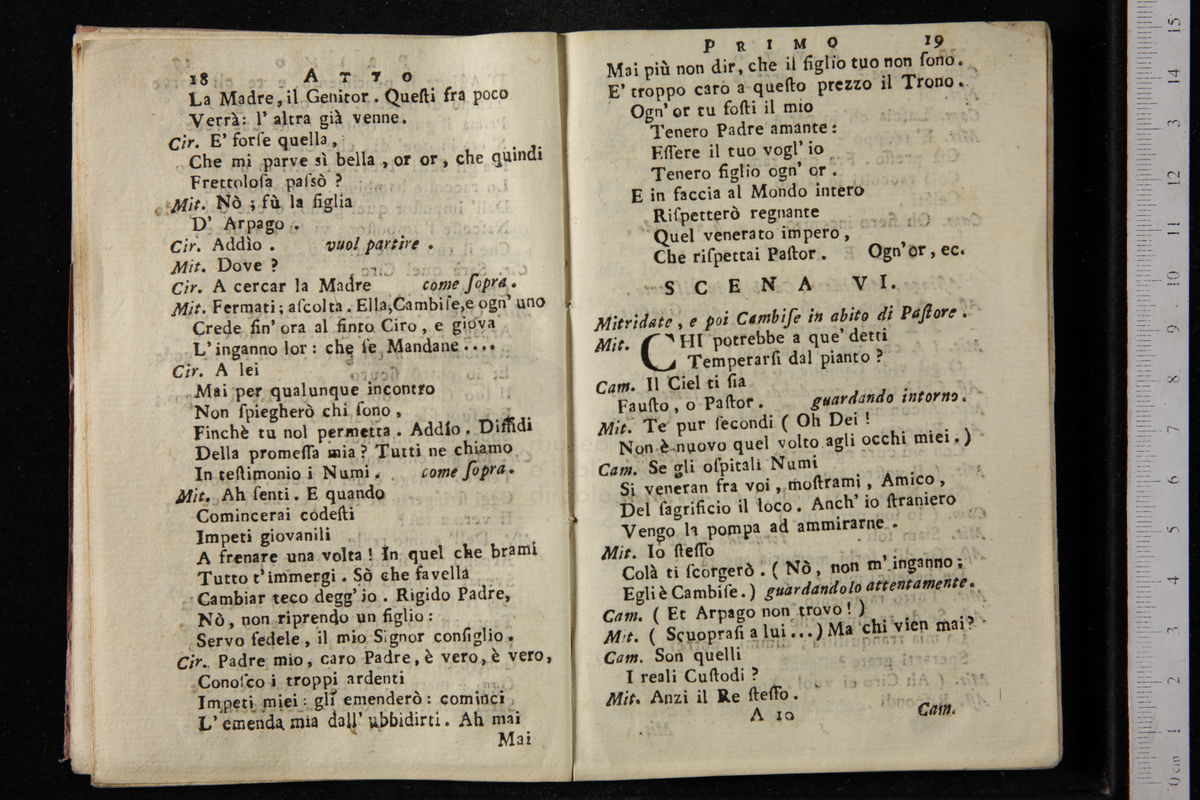 18 ATTO
La Madre, il Genitor. Queſti fra poco
Verrà: l' altra già venne.
Cir. E' forſe quella,
Che mi parve sì bella, or or, che quindi
Frettoloſa paſsò ?
Mit. Nò ; fù la figlia
D' Arpago .
Cir. Addìo . vuol partire .
Mit. Dove ?
Cir. A cercar la Madre come ſopra.
Mit. Fermati; aſcolta. Ella,Cambiſe,e ogn' uno
Crede fin' ora al finto Ciro, e giova
L' inganno lor: che ſe Mandane....
Cir. A lei
Mai per qualunque incontro
Non ſpiegherò chi ſono,
Finchè tu nol permetta. Addìo. Diffidi
Della promeſſa mia? Tutti ne chiamo
In teſtimonio i Numi. come ſopra.
Mit. Ah ſenti. E quando
Comincerai codeſti
Impeti giovanili
A frenare una volta! In quel che brami
Tutto t'immergi. Sò che favella
Cambiar teco degg' io. Rigido Padre,
Nò, non riprendo un figlio:
Servo fedele, il mio Signor configlio.
Cir. Padre mio, caro Padre, è vero, è vero,
Conoſco i troppi ardenti
Impeti miei: gli emenderò: cominci
L' emenda mia dall' ubbidirti. Ah mai
Mai
PRIMO 19
Mai più non dir, che il figlio tuo non ſono.
E' troppo caro a queſto prezzo il Trono.
Ogn' or tu foſti il mio
Tenero Padre amante:
Eſſere il tuo vogl' io
Tenero figlio ogn' or.
E in faccia al Mondo intero
Riſpetterò regnante
Quel venerato impero,
Che riſpettai Paſtor. Ogn' or, ec.
SCENA VI.
Mitridate, e poi Cambiſe in abito di Paſtore.
Mit. CHI potrebbe a que' detti
Temperarſi dal pianto ?
Cam. Il Ciel ti ſia
Fauſto, o Paſtor. guardando intorno.
Mit. Te pur ſecondi ( Oh Dei !
Non è nuovo quel volto agli occhi miei. )
Cam. Se gli oſpitali Numi
Si veneran fra voi, moſtrami, Amico,
Del ſagrificio il loco. Anch' io ſtraniero
Vengo la pompa ad ammirarne.
Mit. Io ſteſſo
Colà ti ſcorgerò. ( Nò, non m' inganno;
Egli è Cambiſe.) guardandolo attentamente.
Cam. ( Et Arpago non trovo! )
Mit. ( Scuopraſi a lui...) Ma chi vien mai?
Cam. Son quelli
I reali Cuſtodi ?
Mit. Anzi il Re ſteſſo.
A 10 Cam.